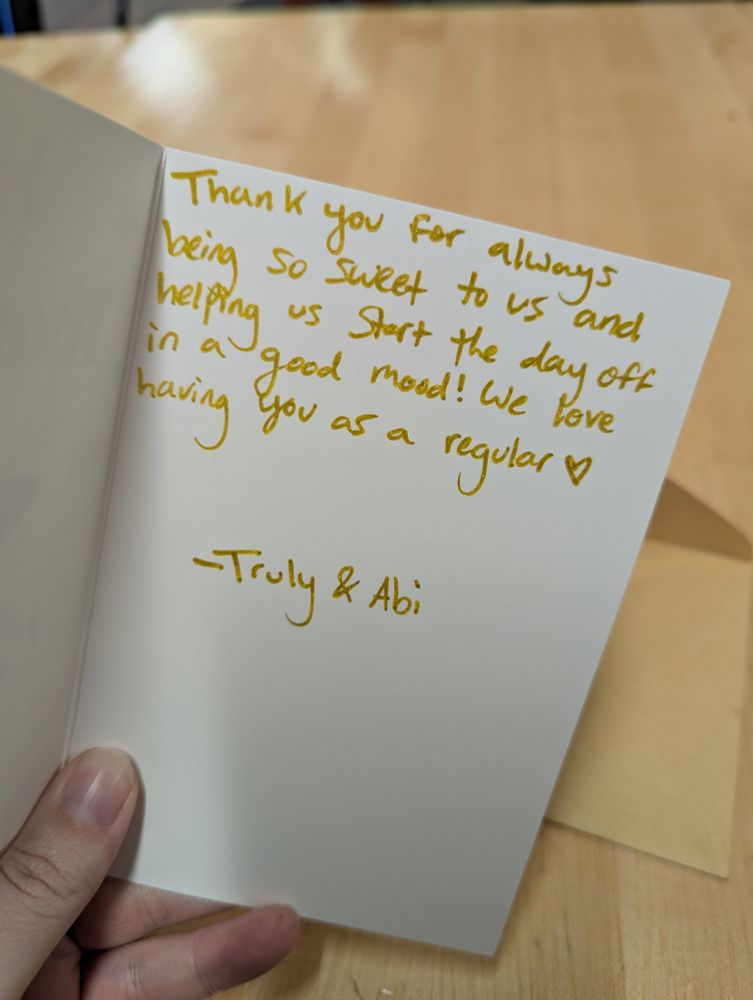 Thank you for always
being so sweet to us and
helping us start the day off
in a good mood! We love
having you as a regular ♡
-Truly & Abi